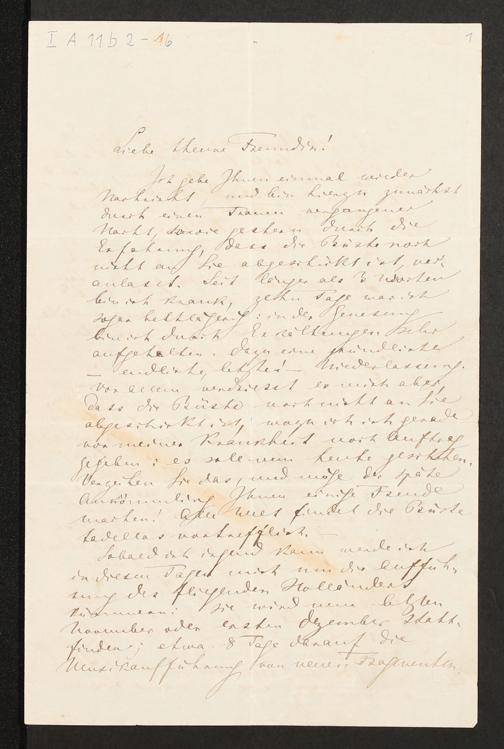 I A 11 b 2 - 16
1
Liebe theure Freundin!
Ich gebe Ihnen einmal wieder
Nachricht, und bin hiezu zunächst
durch einen Traum vergangener
Nacht, sowie gestern durch die
Erfahrung, dass die Büste noch
nicht an Sie abgeschickt ist, ver-
anlasst. Seit länger als 3 Wochen
bin ich krank, zehn Tage war ich
sogar bettlägerig: in der Genesung
bin ich durch Erkältungen sehr
aufgehalten. Dazu eine gründliche
– endliche, letzte! – Niederlassung.
Vor allem verdriesst es mich aber
dass die Büste noch nicht an Sie
abgeschickt ist, wozu ich gerade
vor meiner Krankheit noch Auftrag
gegeben: es soll nun heute geschehen.
Verzeihen Sie das, und möge der späte
Ankömmling Ihnen einige Freude
machen! Alle Welt findet die Büste
tadellos vortrefflich. –
Sobald ich irgend kann werde ich
in diesen Tagen mich um die Auffüh-
rung des fliegenden Holländers
kümmern: sie wird nun letzten
November oder ersten Dezember statt-
finden; etwa 8 Tage darauf die
Musikaufführung von neuen Fragmenten.